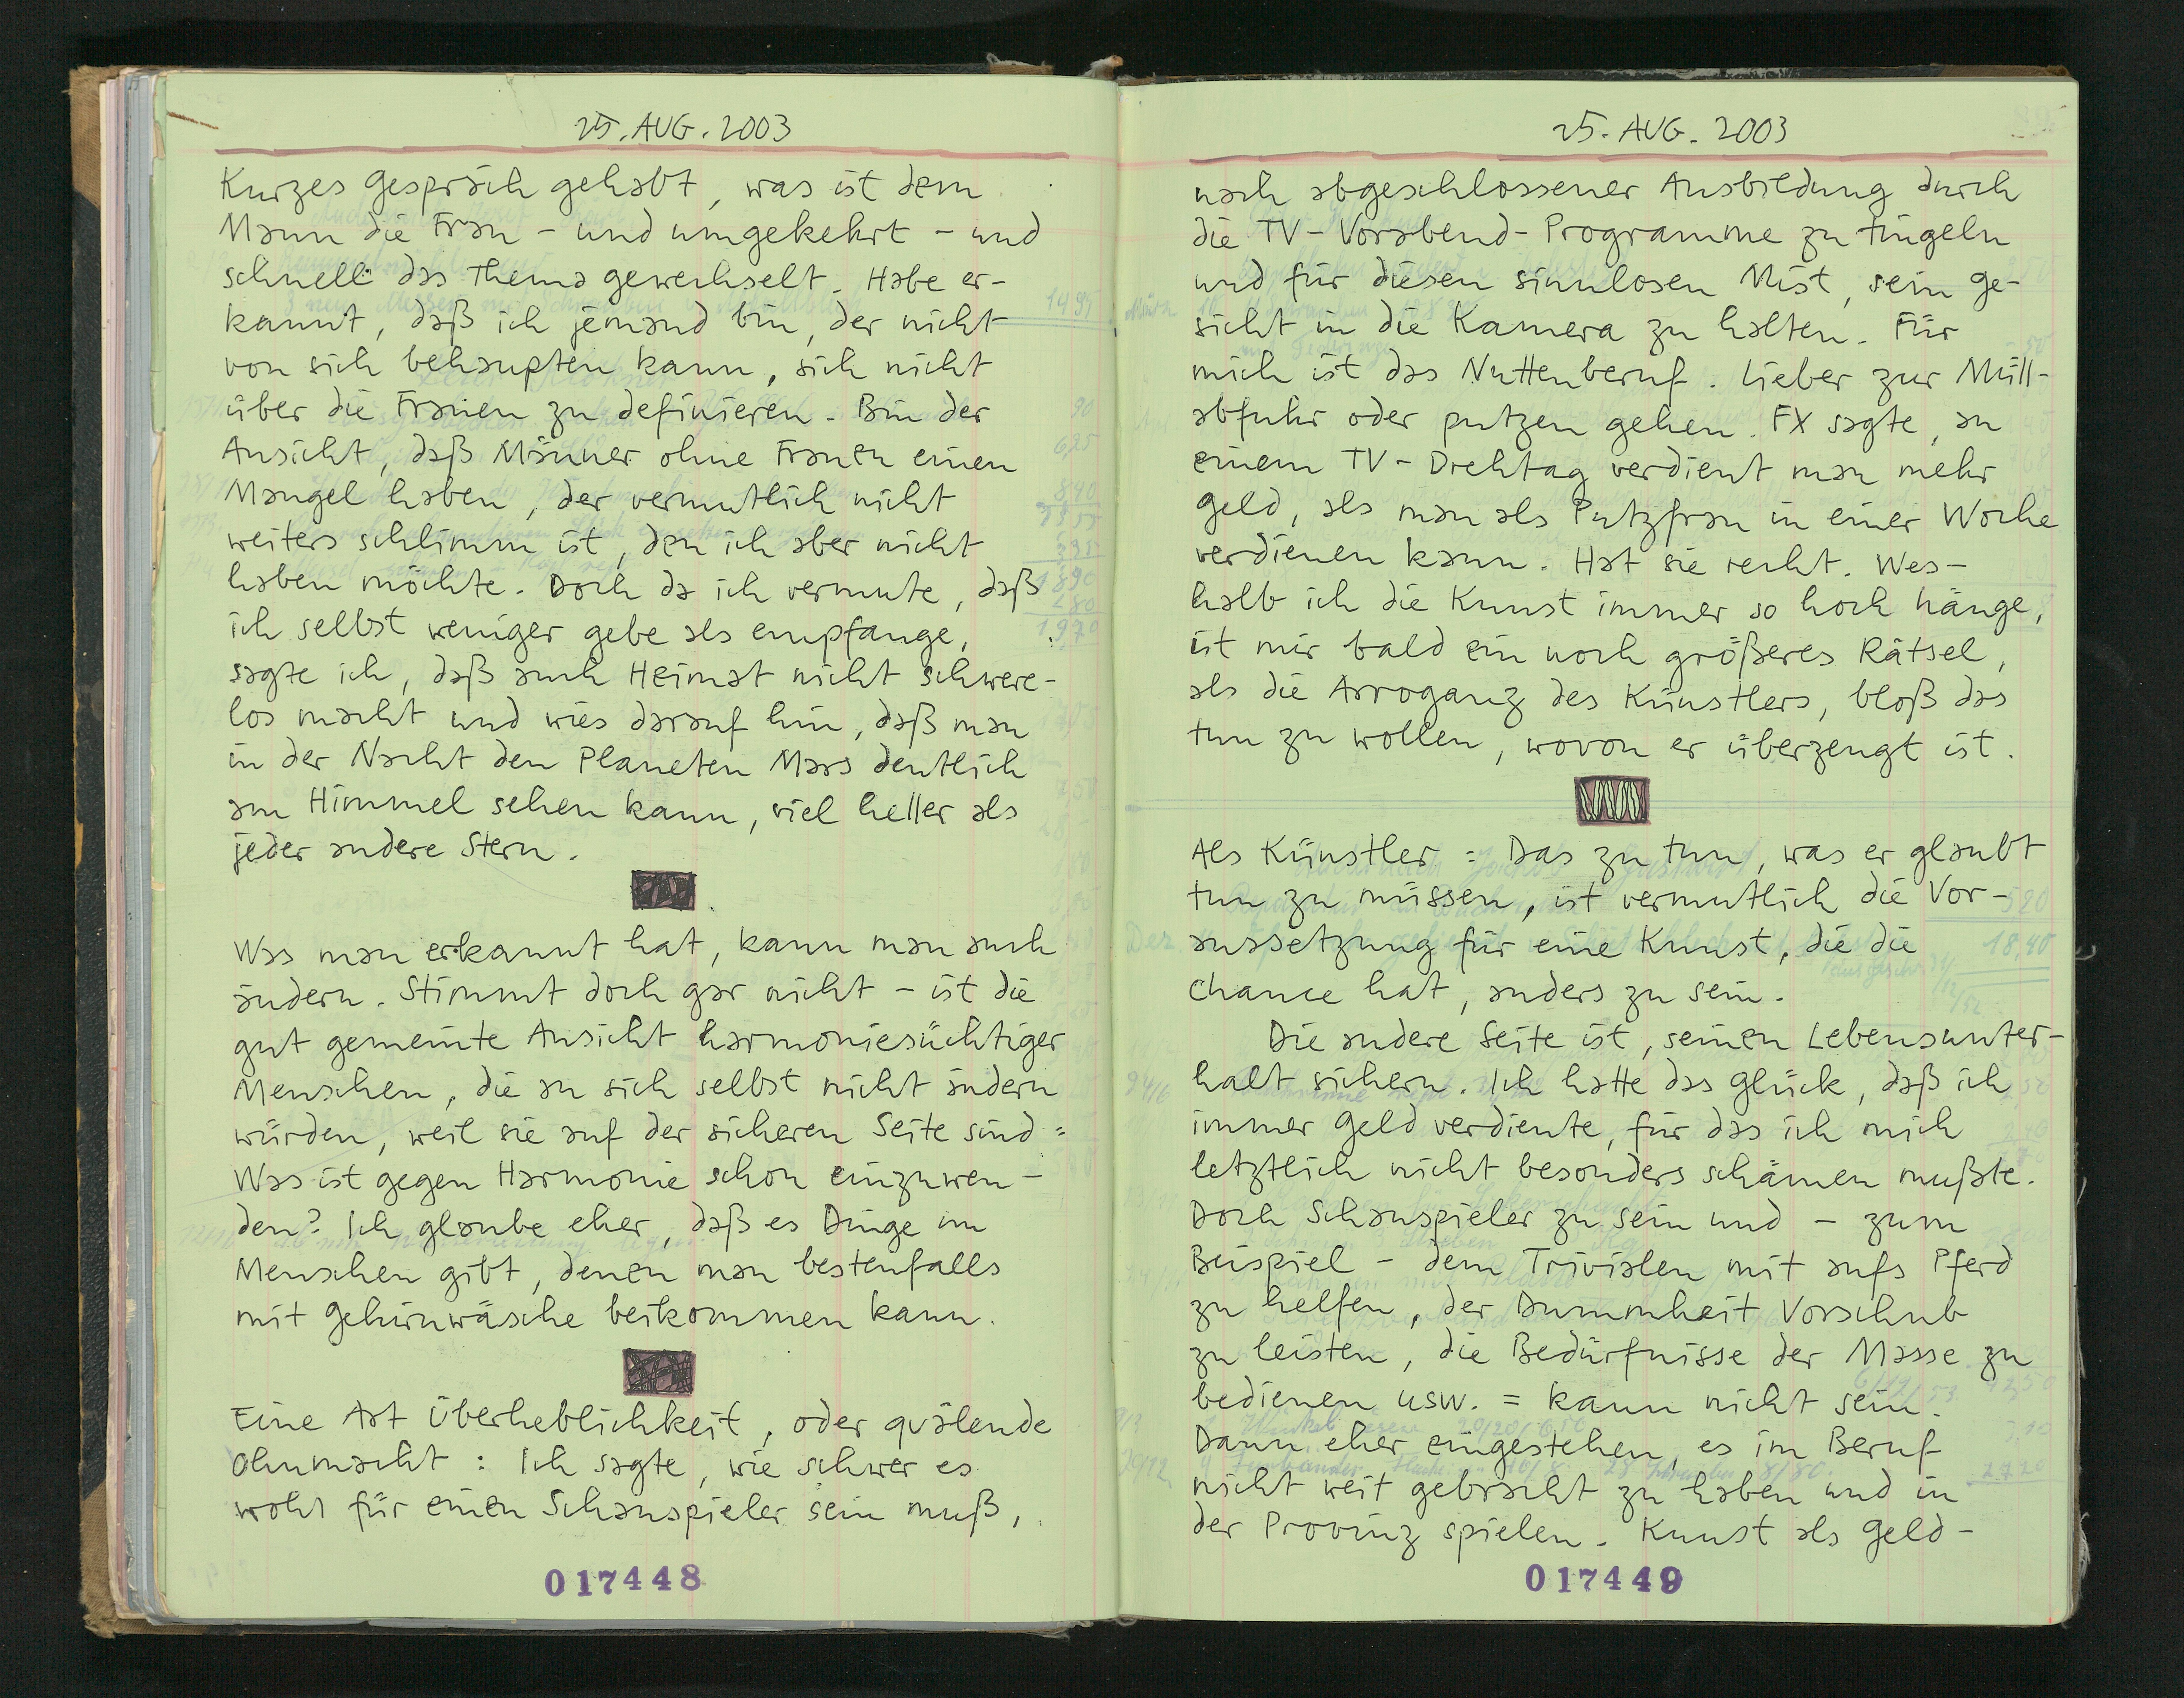 25. AUG. 2003
Kurzes Gespräch gehabt, was ist dem
Mann die Frau - und umgekehrt - und
schnell das Thema gewechselt. Habe er-
kannt, daß ich jemand bin, der nicht
von sich behaupten kann, sich nicht
über die Frauen zu definieren. Bin der
Ansicht, daß Männer ohne Frauen einen
Mangel haben, der vermutlich nicht
weiters schlimm ist, den ich aber nicht
haben möchte. Doch da ich vermute, daß
ich selbst weniger gebe als empfange,
sagte ich, daß auch Heimat nicht schwere-
los macht und wies darauf hin, daß man
in der Nacht den Planeten Mars deutlich
am Himmel sehen kann, viel heller als
jeder andere Stern.
Was man erkannt hat, kann man auch
ändern. Stimmt doch gar nicht - ist die
gut gemeinte Ansicht harmoniesüchtiger
Menschen, die an sich selbst nicht ändern
würden, weil sie auf der sicheren Seite sind:
Was ist gegen Harmonie schon einzuwen-
den? Ich glaube eher, daß es Dinge im
Menschen gibt, denen man bestenfalls
mit Gehirnwäsche beikommen kann.
Eine Art Überheblichkeit, oder quälende
Ohnmacht: Ich sagte, wie schwer es
wohl für einen Schauspieler sein muß,
017448
25. AUG. 2003
nach abgeschlossener Ausbildung durch
die TV-Vorabend-Programme zu tingeln
und für diesen sinnlosen Mist, sein Ge-
sicht in die Kamera zu halten. Für
mich ist das Nuttenberuf. Lieber zur Müll-
abfuhr oder putzen gehen. FX sagte, an
einem TV-Drehtag verdient man mehr
Geld, als man als Putzfrau in einer Woche
verdienen kann. Hat sie recht. Wes-
halb ich die Kunst immer so hoch hänge,
ist mir bald ein noch größeres Rätsel,
als die Arroganz des Künstlers, bloß das
tun zu wollen, wovon er überzeugt ist.
Als Künstler: Das zu tun, was er glaubt
tun zu müssen, ist vermutlich die Vor-
aussetzung für eine Kunst, die die
Chance hat, anders zu sein.
Die andere Seite ist, seinen Lebensunter-
halt sichern. Ich hatte das Glück, daß ich
immer Geld verdiente, für das ich mich
letztlich nicht besonders schämen mußte.
Doch Schauspieler zu sein und - zum
Beispiel - dem Trivialen mit aufs Pferd
zu helfen, der Dummheit Vorschub
zu leisten, die Bedürfnisse der Masse zu
bedienen usw. = kann nicht sein.
Dann eher eingestehen, es im Beruf
nicht weit gebracht zu haben und in
der Provinz spielen. Kunst als Geld-
017449